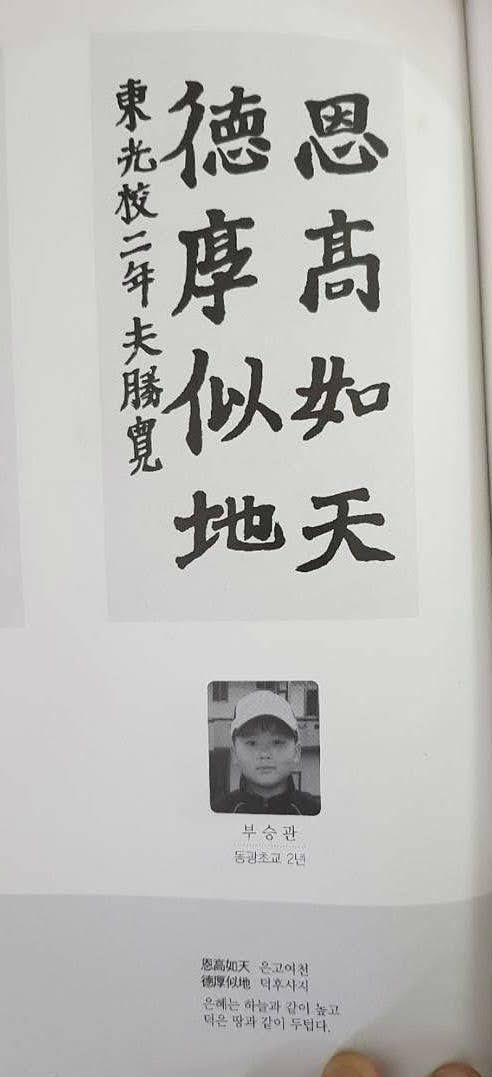 恩高如天
德厚似地
東光校二年夫勝寬
부승관
동광초교 2년
恩高如天 은고여천
德厚似地 덕후사지
은혜는 하늘과 같이 높고
덕은 땅과 같이 두텁다.